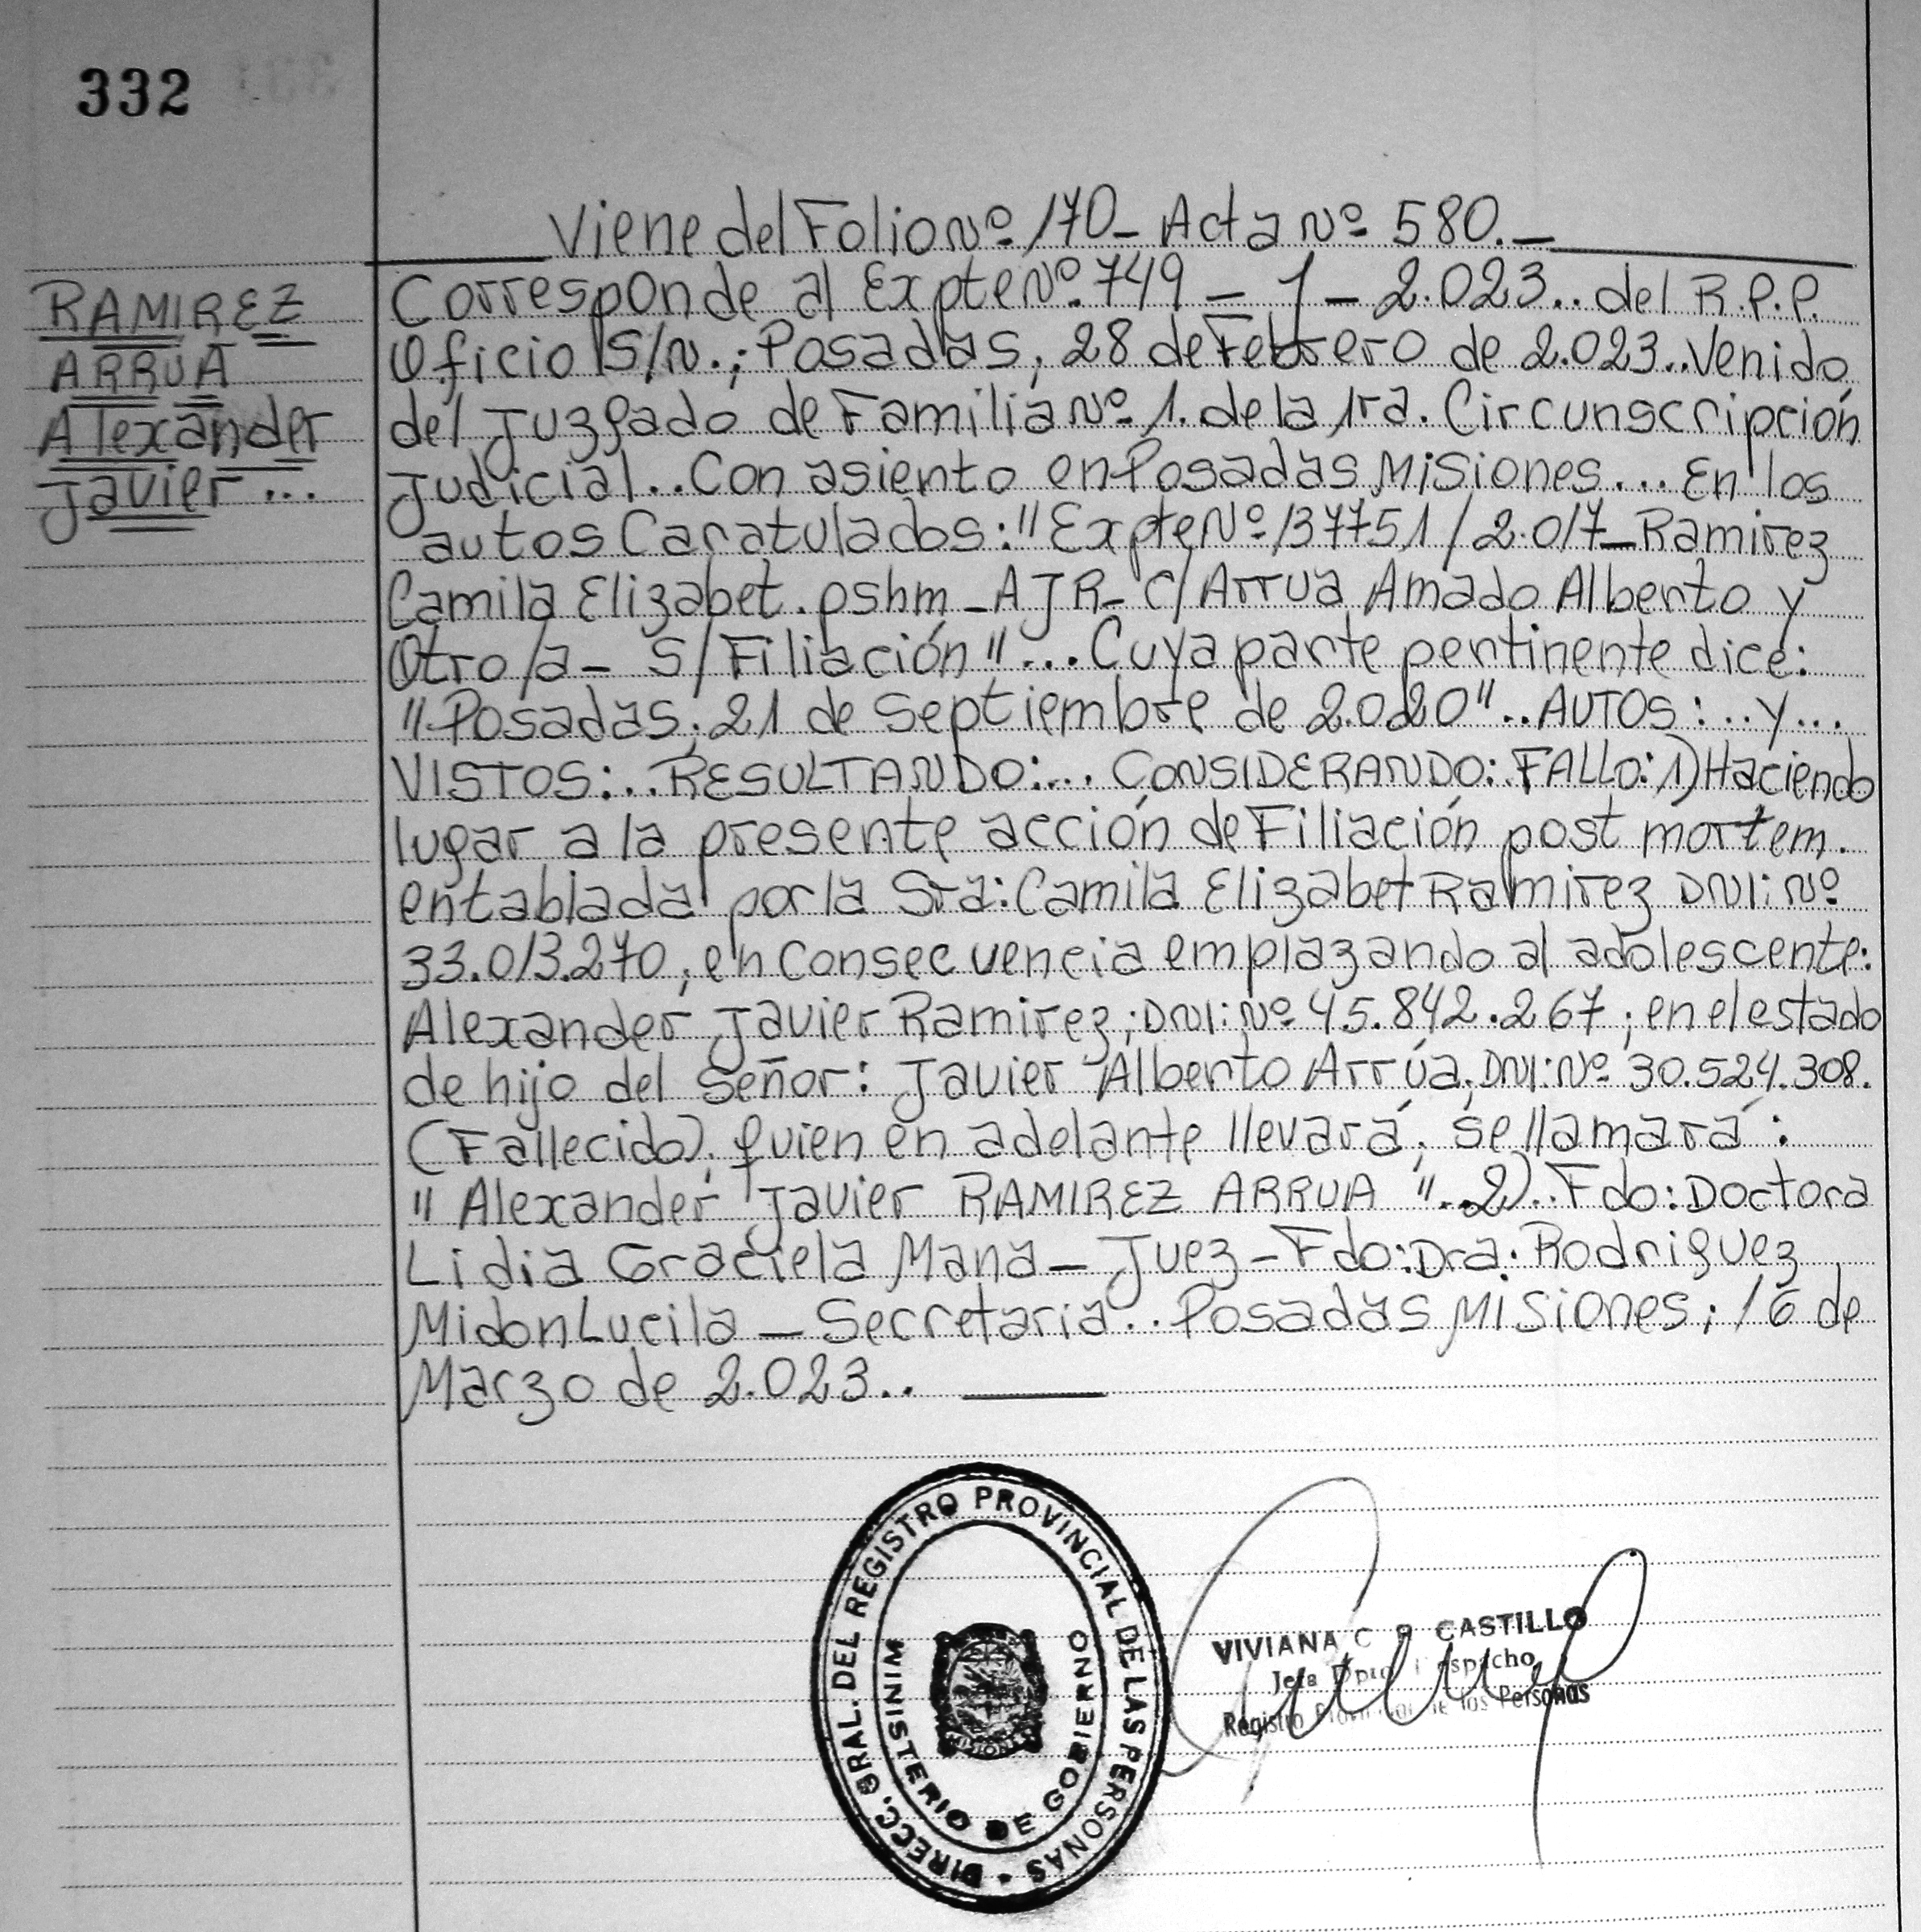 332
Viene del Folio Nº 170_ Acta Nº 580._
RAMIREZ
ARRUA
Alexander
Javier...
Corresponde al Expte Nº. 749 _ 1 _ 2.023.. del R.P.P.
Oficio S/N.; Posadas, 28 de Febrero de 2.023.. Venido
del Juzgado de Familia Nº 1. de la 1ra. Circunscripción
Judicial.. Con asiento en Posadas Misiones... En los
autos Caratulados: "Expte Nº 137751/2.017_Ramirez
Camila Elizabet. pshm _AJR_ C/ Arrua Amado Alberto y
Otro/a_ S/ Filiación"... Cuya parte pertinente dice:
"Posadas; 21 de Septiembre de 2.020".. AUTOS: .. y ...
VISTOS: .. RESULTANDO: ... CONSIDERANDO: FALLO: 1) Haciendo
lugar a la presente acción de Filiación post mortem.
entablada por la Sra: Camila Elizabet Ramirez DNI: Nº
33.013.270, en Consecuencia emplazando al adolescente:
Alexander Javier Ramirez; DNI: Nº 45.842.267; en el estado
de hijo del Señor: Javier Alberto Arrúa. DNI: Nº 30.524.308.
(Fallecido); quien en adelante llevará; se llamará:
"Alexander Javier RAMIREZ ARRUA"..2).. Fdo: Doctora
Lidia Graciela Mana _ Juez _ Fdo: Dra: Rodriguez
Midon Lucila _ Secretaria.. Posadas Misiones; 16 de
Marzo de 2.023..
DIRECC. GRAL. DEL REGISTRO PROVINCIAL DE LAS PERSONAS
MINISTERIO DE GOBIERNO
VIVIANA C CASTILLO
Jefa Dpto
Registro Personas